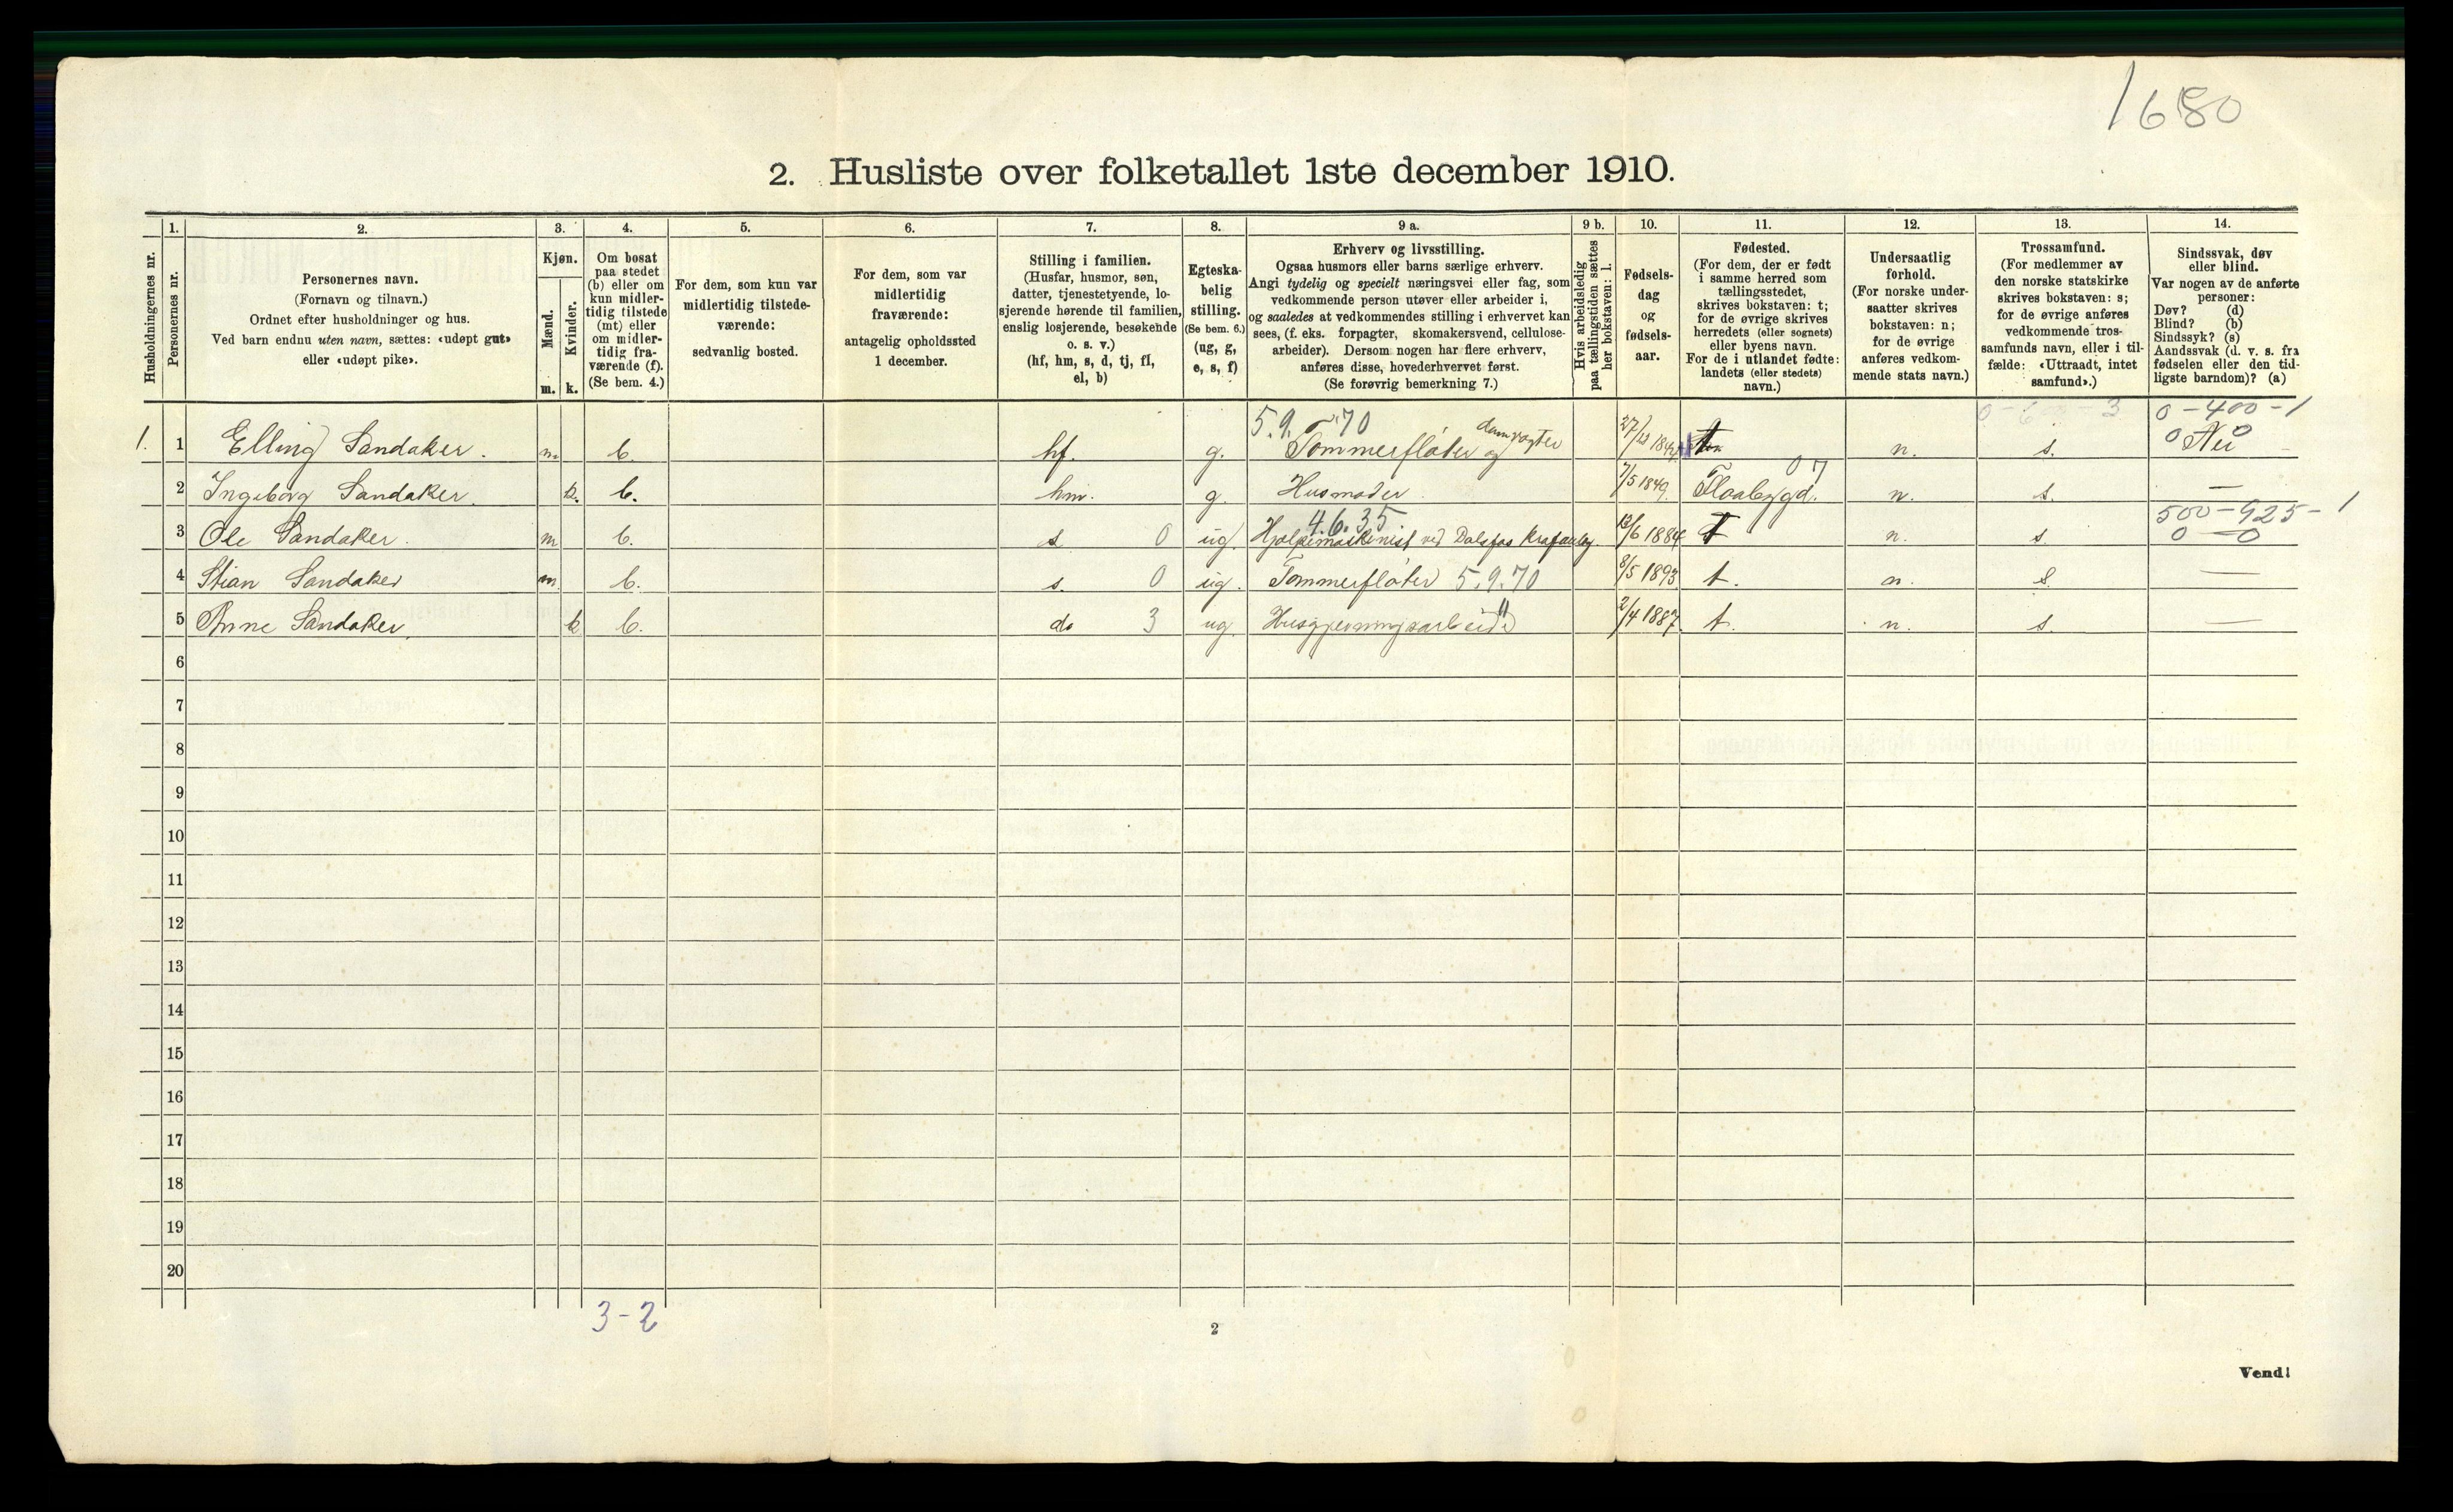 1680
2. Husliste over folketallet 1ste december 1910.
Husholdningernes nr.
1. Personernes nr.
2. Personernes navn.
(Fornavn og tilnavn.)
Ordnet efter husholdninger og hus.
Ved barn endnu uten navn, sættes: «udøpt gut»
eller «udøpt pike».
3. Kjøn.
Mænd. m.
Kvinder. k.
4. Om bosat
paa stedet
(b) eller om
kun midler-
tidig tilstede
(mt) eller
om midler-
tidig fra-
værende (f).
(Se bem. 4.)
5. For dem, som kun var
midlertidig tilstede-
værende:
sedvanlig bosted.
6. For dem, som var
midlertidig
fraværende:
antagelig opholdssted
1 december.
7. Stilling i familien.
(Husfar, husmor, søn,
datter, tjenestetyende, lo-
sjerende hørende til familien,
enslig losjerende, besøkende
o. s. v.)
(hf, hm, s, d, tj, fl,
el, b)
8. Egteska-
belig
stilling.
(Se bem. 6.)
(ug, g,
e, s, f)
9 a. Erhverv og livsstilling.
Ogsaa husmors eller barns særlige erhverv.
Angi tydelig og specielt næringsvei eller fag, som
vedkommende person utøver eller arbeider i,
og saaledes at vedkommendes stilling i erhvervet kan
sees, (f. eks. forpagter, skomakersvend, cellulose-
arbeider). Dersom nogen har flere erhverv,
anføres disse, hovederhvervet først.
(Se forøvrig bemerkning 7.)
9 b. Hvis arbeidsledig
paa tællingstiden sættes
her bokstaven: l.
10. Fødsels-
dag
og
fødsels-
aar.
11. Fødested.
(For dem, der er født
i samme herred som
tællingsstedet,
skrives bokstaven: t;
for de øvrige skrives
herredets (eller sognets)
eller byens navn.
For de i utlandet fødte:
landets (eller stedets)
navn.)
12. Undersaatlig
forhold.
(For norske under-
saatter skrives
bokstaven: n;
for de øvrige
anføres vedkom-
mende stats navn.)
13. Trossamfund.
(For medlemmer av
den norske statskirke
skrives bokstaven: s;
for de øvrige anføres
vedkommende tros-
samfunds navn, eller i til-
fælde: «Uttraadt, intet
samfund».)
14. Sindssvak, døv
eller blind.
Var nogen av de anførte
personer:
Døv? (d)
Blind? (b)
Sindssyk? (s)
Aandssvak (d. v. s. fra
fødselen eller den tid-
ligste barndom)? (a)
5.9.70 0-400-1
1. 1 Elling Sandaker. m. b. hf. g. Tommerfløter og damvogter n. s. Nei
0 7
2 Ingeborg Sandaker. k. b. hm. g. Husmoder. 7/5 1849. Flaabygd. n. s. —
4.6.35 500-925-1
3 Ole Sandaker. m b. s 0 ug. Hjelpemaskinist ved Dalsfos Krafanlæg. 12/6 1884 t n. s. 0—0
4 Stian Sandaker m. b. s. 0 ug. Tommerfløter 5.9.70 8/5 1893 t. n. s —
5 Anne Sandaker. k b. d. 3 ug. Husgjerningsarbeide 2/4 1887. t. n. s. —
6
7
8
9
10
11
12
13
14
15
16
17
18
19
20
3-2
2
Vend!